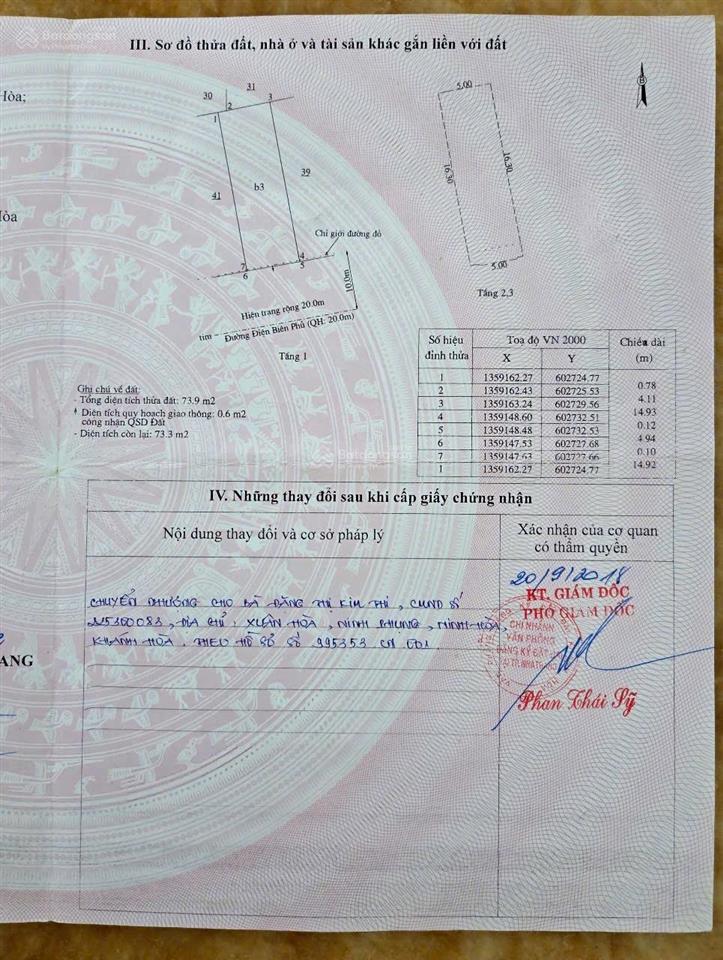 Batdongsan
III. Sơ đồ thửa đất, nhà ở và tài sản khác gắn liền với đất
Hòa;
Hòa
ANG
30
31
1
2
3
b3
39
41
Chỉ giới đường đỏ
7
6
4
5
10.0m
Hiện trạng rộng 20.0m
tim Đường Điện Biên Phủ (QH: 20.0m)
Tầng 1
B
5.00
16.30
16.30
5.00
Tầng 2,3
Ghi chú về đất:
- Tổng diện tích thửa đất: 73.9 m2
* Diện tích quy hoạch giao thông: 0.6 m2
công nhận QSD Đất
- Diện tích còn lại: 73.3 m2
Số hiệu đỉnh thửa Toạ độ VN 2000 Chiều dài (m)
X Y
1 1359162.27 602724.77
0.78
2 1359162.43 602725.53
4.11
3 1359163.24 602729.56
14.93
4 1359148.60 602732.51
0.12
5 1359148.48 602732.53
4.94
6 1359147.53 602727.68
0.10
7 1359147.63 602727.66
14.92
1 1359162.27 602724.77
Batdongsan
IV. Những thay đổi sau khi cấp giấy chứng nhận
Nội dung thay đổi và cơ sở pháp lý
Xác nhận của cơ quan
có thẩm quyền
CHUYỂN NHƯỢNG CHO BÀ ĐẶNG THỊ KIM THI, CMND SỐ
225360083, ĐỊA CHỈ: XUÂN HÒA, NINH PHỤNG, NINH HÒA,
KHÁNH HÒA, THEO HỒ SƠ SỐ 995353 CN 001
20/9/2018
KT. GIÁM ĐỐC
PHÓ GIÁM ĐỐC
CHI NHÁNH
VĂN PHÒNG
ĐĂNG KÝ ĐẤT ĐAI
TẠI TP. NHA TRANG
Phan Thái Sỹ